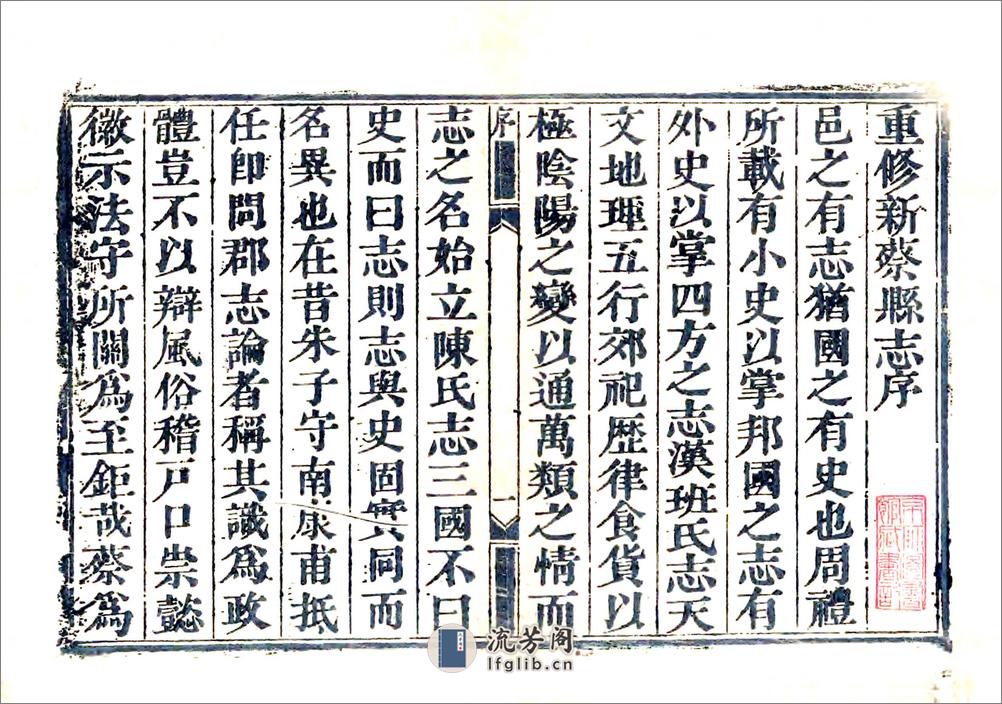 重修新蔡縣志序
邑之有志猶國之有史也周禮
所載有小史以掌邦國之志有
外史以掌四方之志漢班氏志天
文地理五行郊祀歷律食貨以
極陰陽之變以通萬類之情而
序
一
志之名始立陳氏志三國不曰
史而曰志則志與史固實同而
名異也在昔朱子守南康甫抵
任即問郡志論者稱其識為政
體豈不以辯風俗稽戸口崇懿
徽示法守所關爲至鉅哉蔡為
流芳阁
lfglib.cn